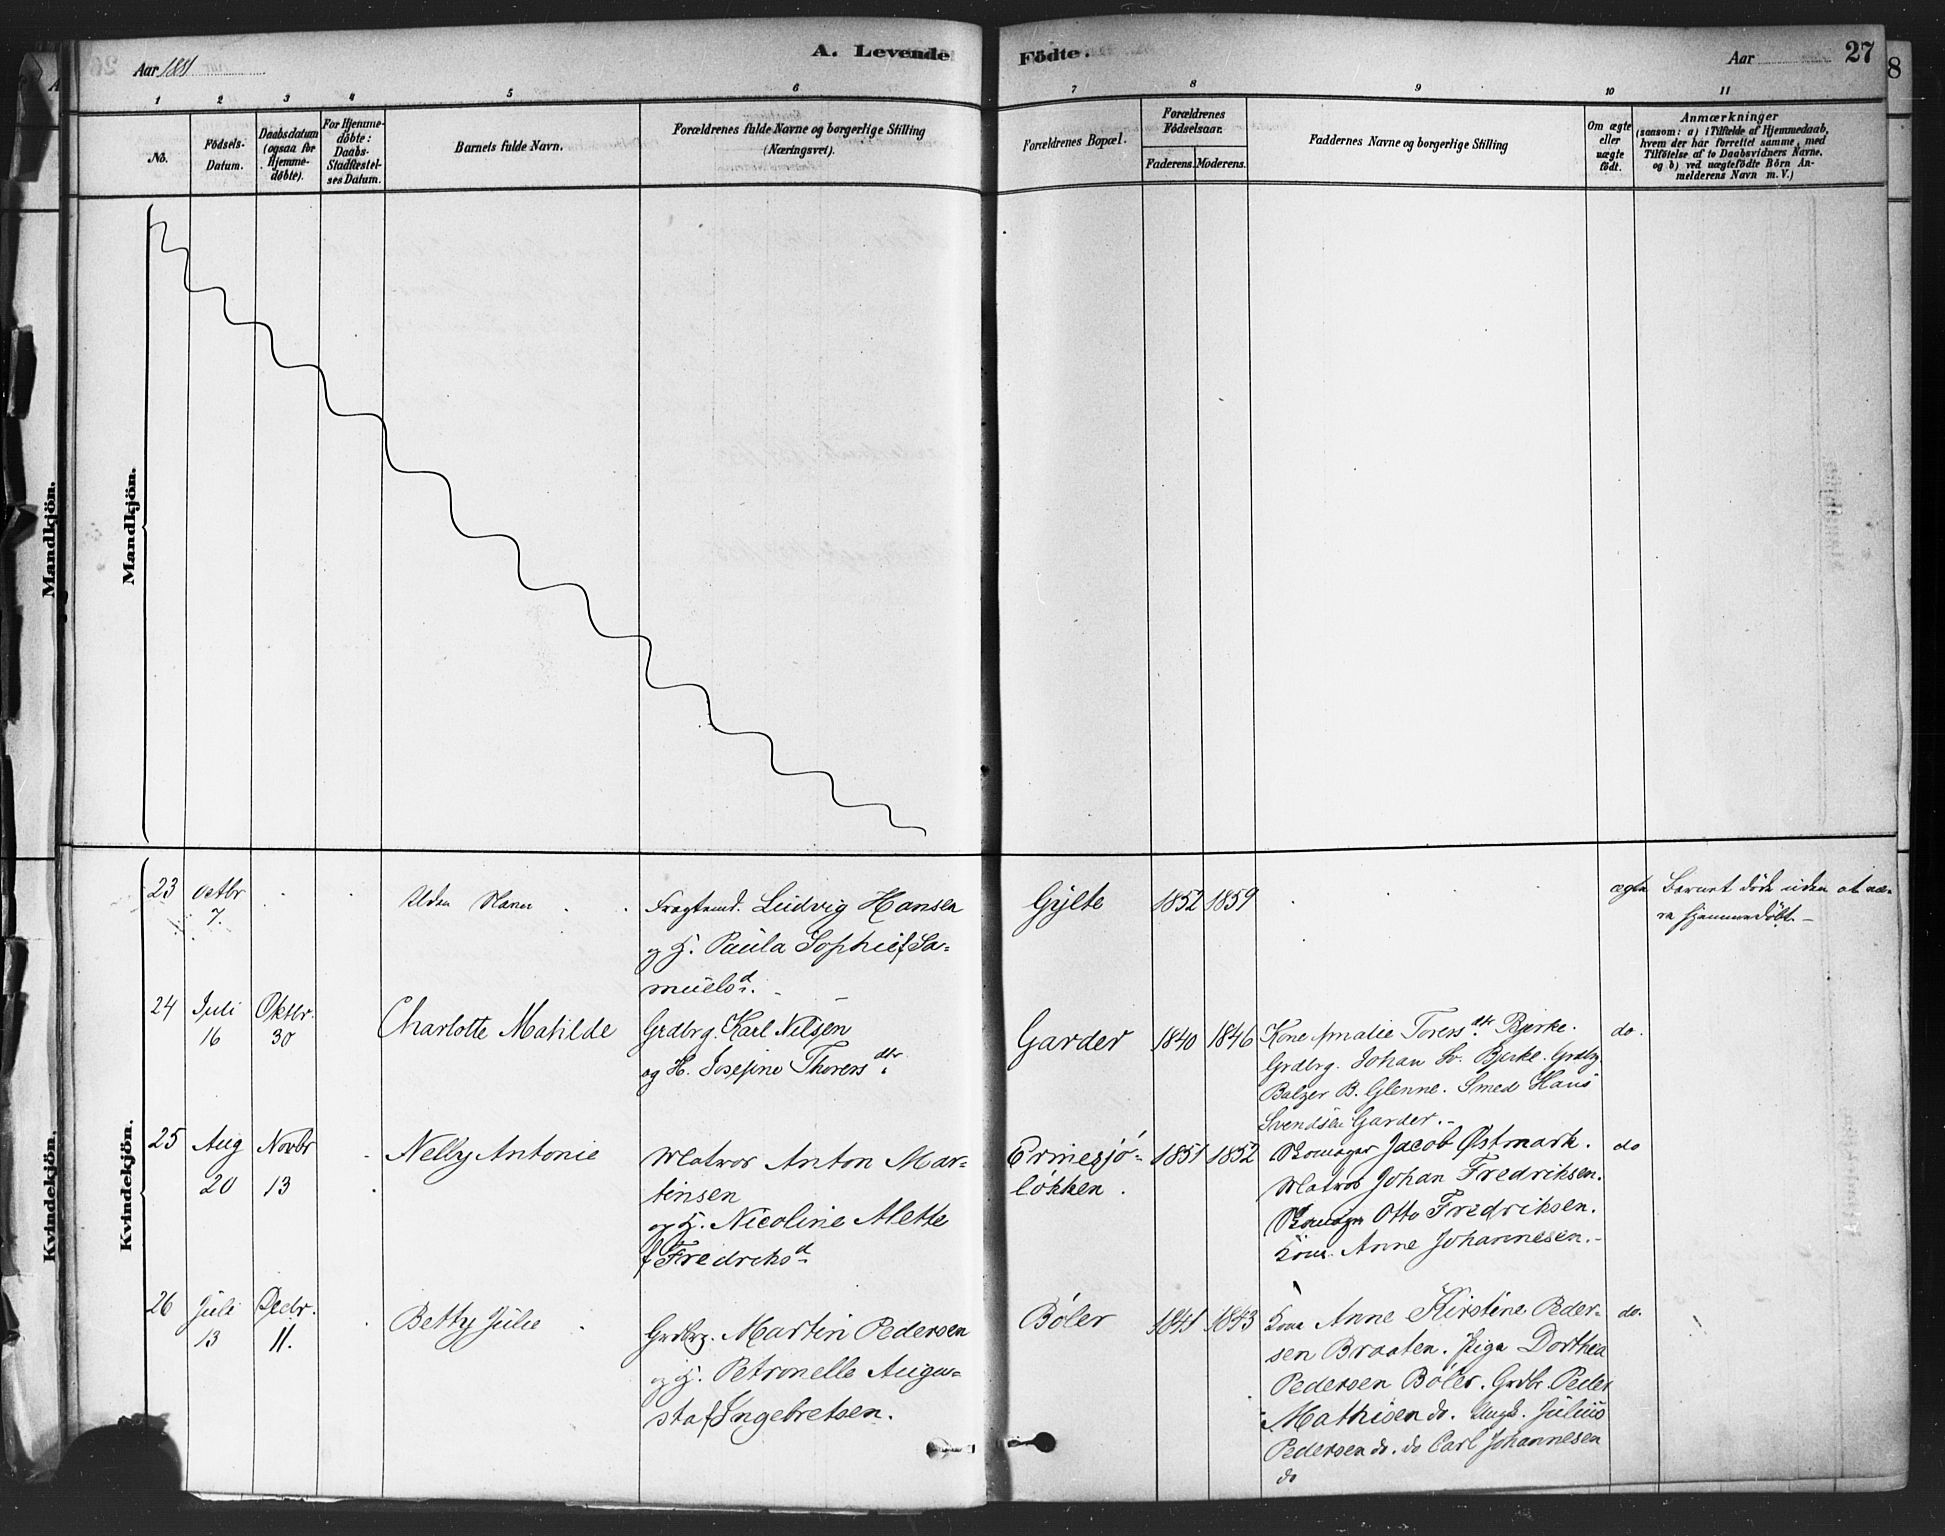 Aar 1881
A. Levende Födte.
Aar
27
8
1 2 3 4 5 6 7 8 9 10 11
No.
Födsels-
Datum.
Daabsdatum
(ogsaa for
Hjemme-
døbte).
For Hjemme-
døbte:
Daabs-
Stadfæstel-
ses Datum.
Barnets fulde Navn.
Forældrenes fulde Navne og borgerlige Stilling
(Næringsvei).
Forældrenes Bopæl.
Forældrenes
Födselsaar.
Faderens. Moderens.
Faddernes Navne og borgerlige Stilling
Om ægte
eller
uægte
født.
Anmærkninger
(saasom: a) i Tilfælde af Hjemmedaab,
hvem der har forrettet samme, med
Tilføielse af to Daabsvidners Navne,
og b) ved uægtefödte Börn An-
melderens Navn m. V.)
Mandkjön.
Mandkjön.
Kvindekjön.
Kvindekjön.
23
Octbr
7.
Uden Navn
Fragtmd. Ludvig Hansen
og H. Paula Sophie f Sa-
muelsd.
Gylte
1852 1859
ægte
Barnet døde uden at væ-
re hjemmedøbt.
24
Juli
16
Oktbr.
30
Charlotte Matilde
Grdbrg. Karl Nilsen
og H. Josefine Thorersdtr.
Garder
1840 1846
Kone Amalie Torersdtr. Bjerke.
Grdbrg. Johan Bjerke. Grdbg
Balzer B. Glenne. Smed Hans
Svendsen Garder.
do.
25
Aug
20
Novbr
13
Nelly Antonie
Matros Anton Mar-
tinsen
og H. Nicoline Alette
f Fredriksd.
løkken.
1851 1852
Jacob Østmark.
Matros Johan Fredriksen.
Otto Fredriksen.
Kone Anne Johannesen.
do
26
Juli
13
Decbr.
11.
Betty Julie
Grdbrg. Martin Pedersen
og H. Petronelle Augu-
sta f Ingebretsen.
Bøler
1841 1843
Kone Anne Kirstine Peder-
sen Braaten. Pige Dorthea
Pedersen Bøler. Grdbr. Peder
Mathisen do. Ungk. Julius
Pedersen do. do Carl Johannesen
do
do.